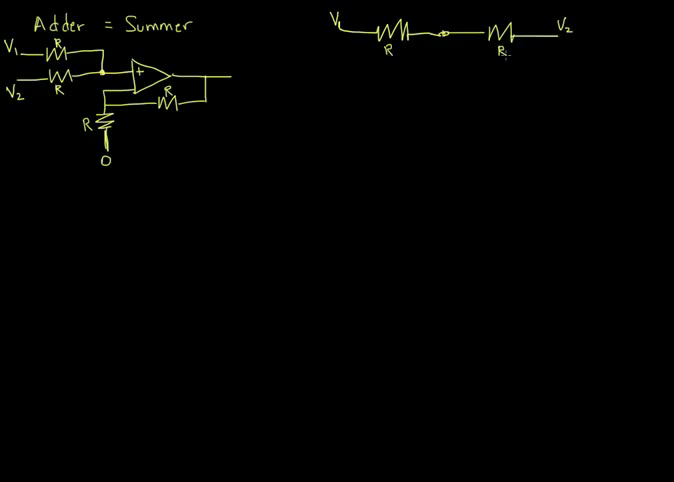 Adder = Summer
V1
R
V2
R
+
R
R
0
V1
R
V2
R